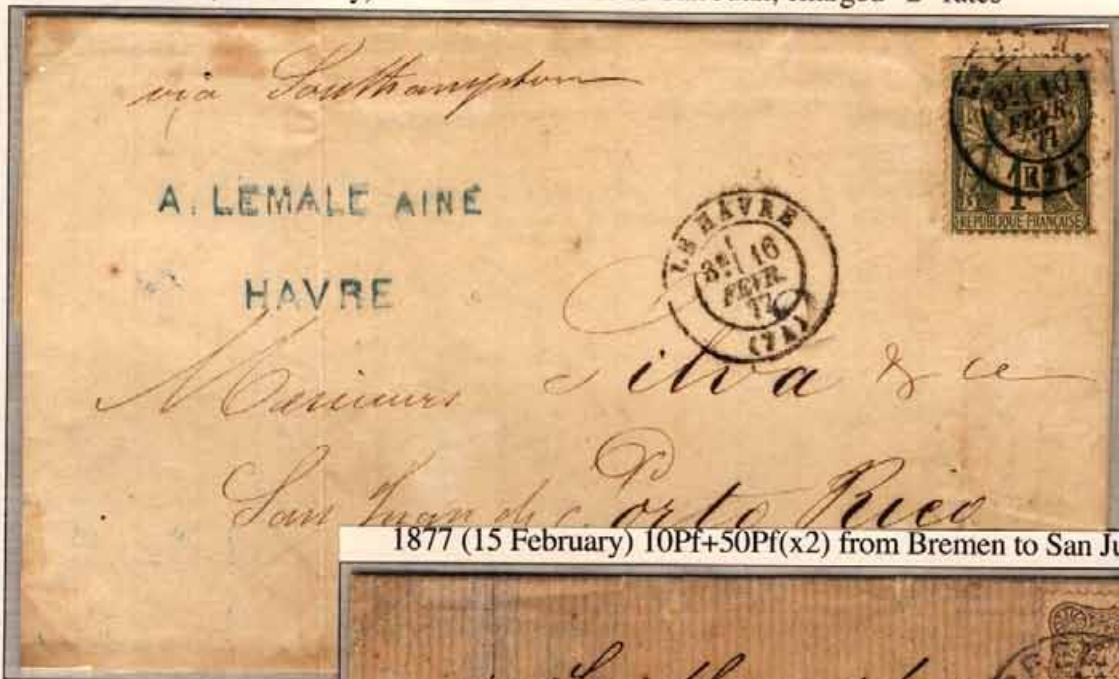 via Southampton
A. LEMALE AINÉ
HAVRE
LE HAVRE
3E/ 16
FEVR.
77
(74)
16
FEVR.
77
(74)
1F
REPUBLIQUE FRANCAISE
Messieurs Silva & ce
San Juan de Porto Rico
1877 (15 February) 10Pf+50Pf(x2) from Bremen to San Ju
Southampton